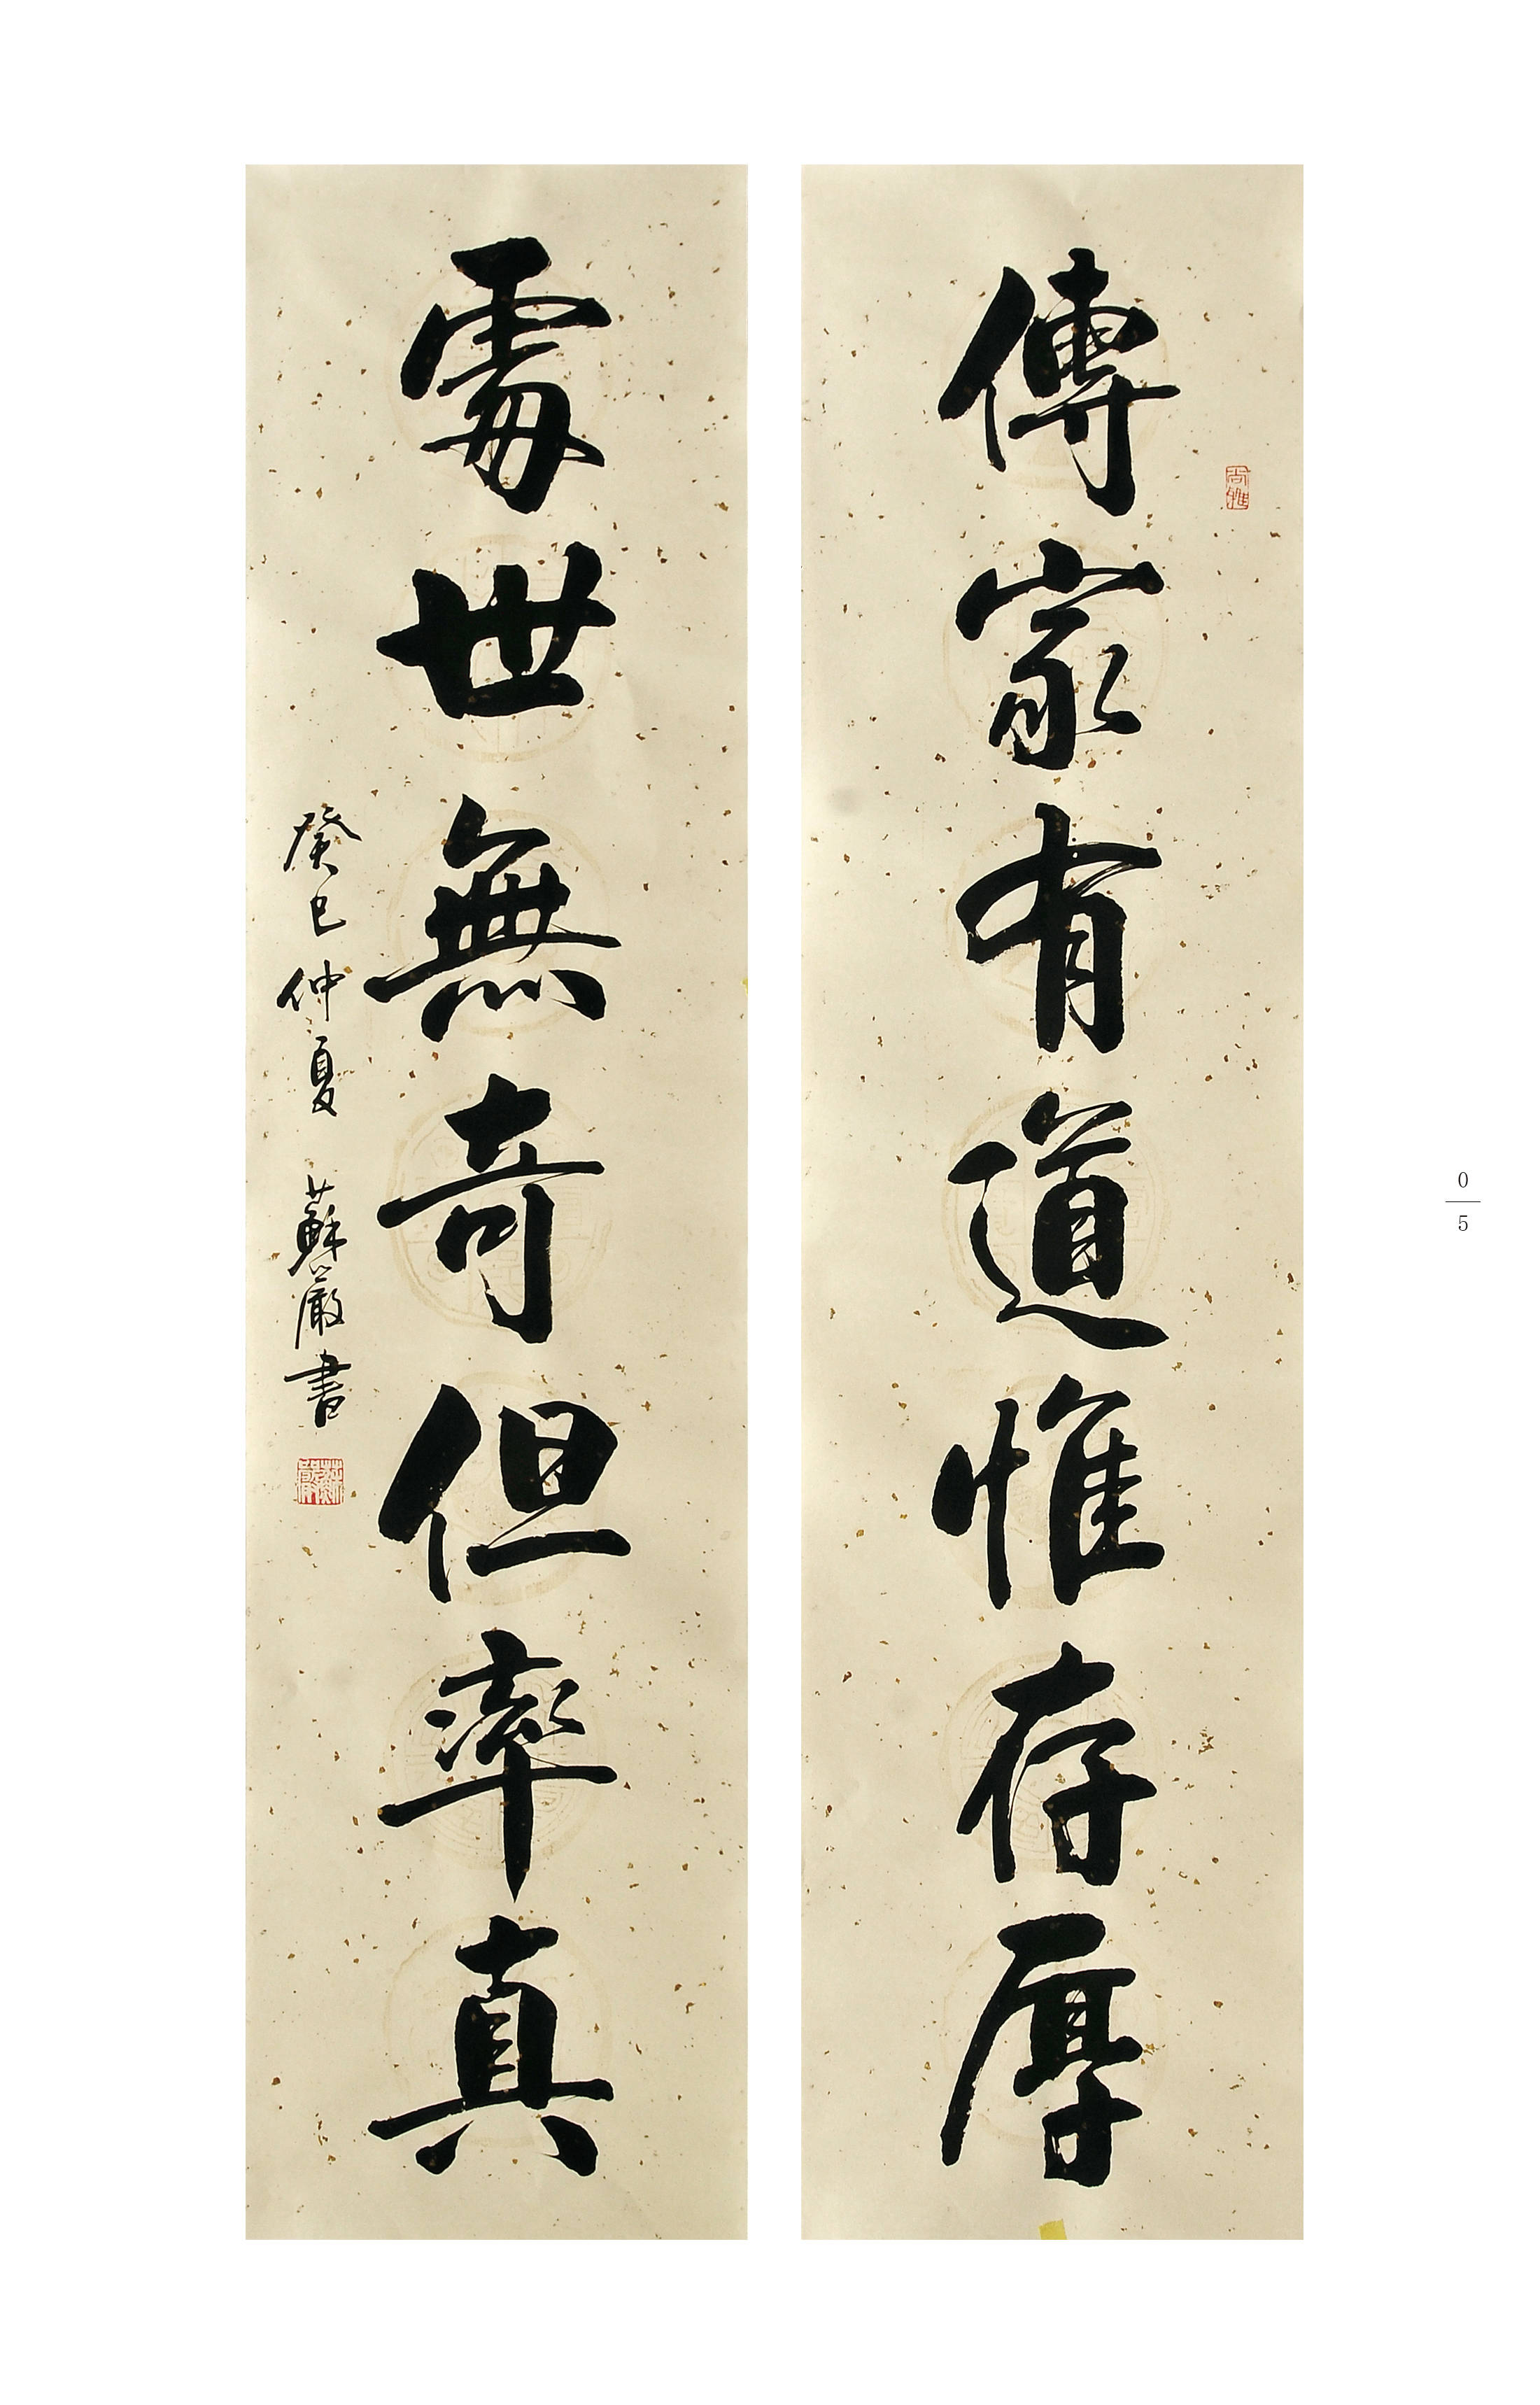 傳家有道惟存厚
處世無奇但率真
癸巳仲夏 蘇嚴書
尚雅
0
5